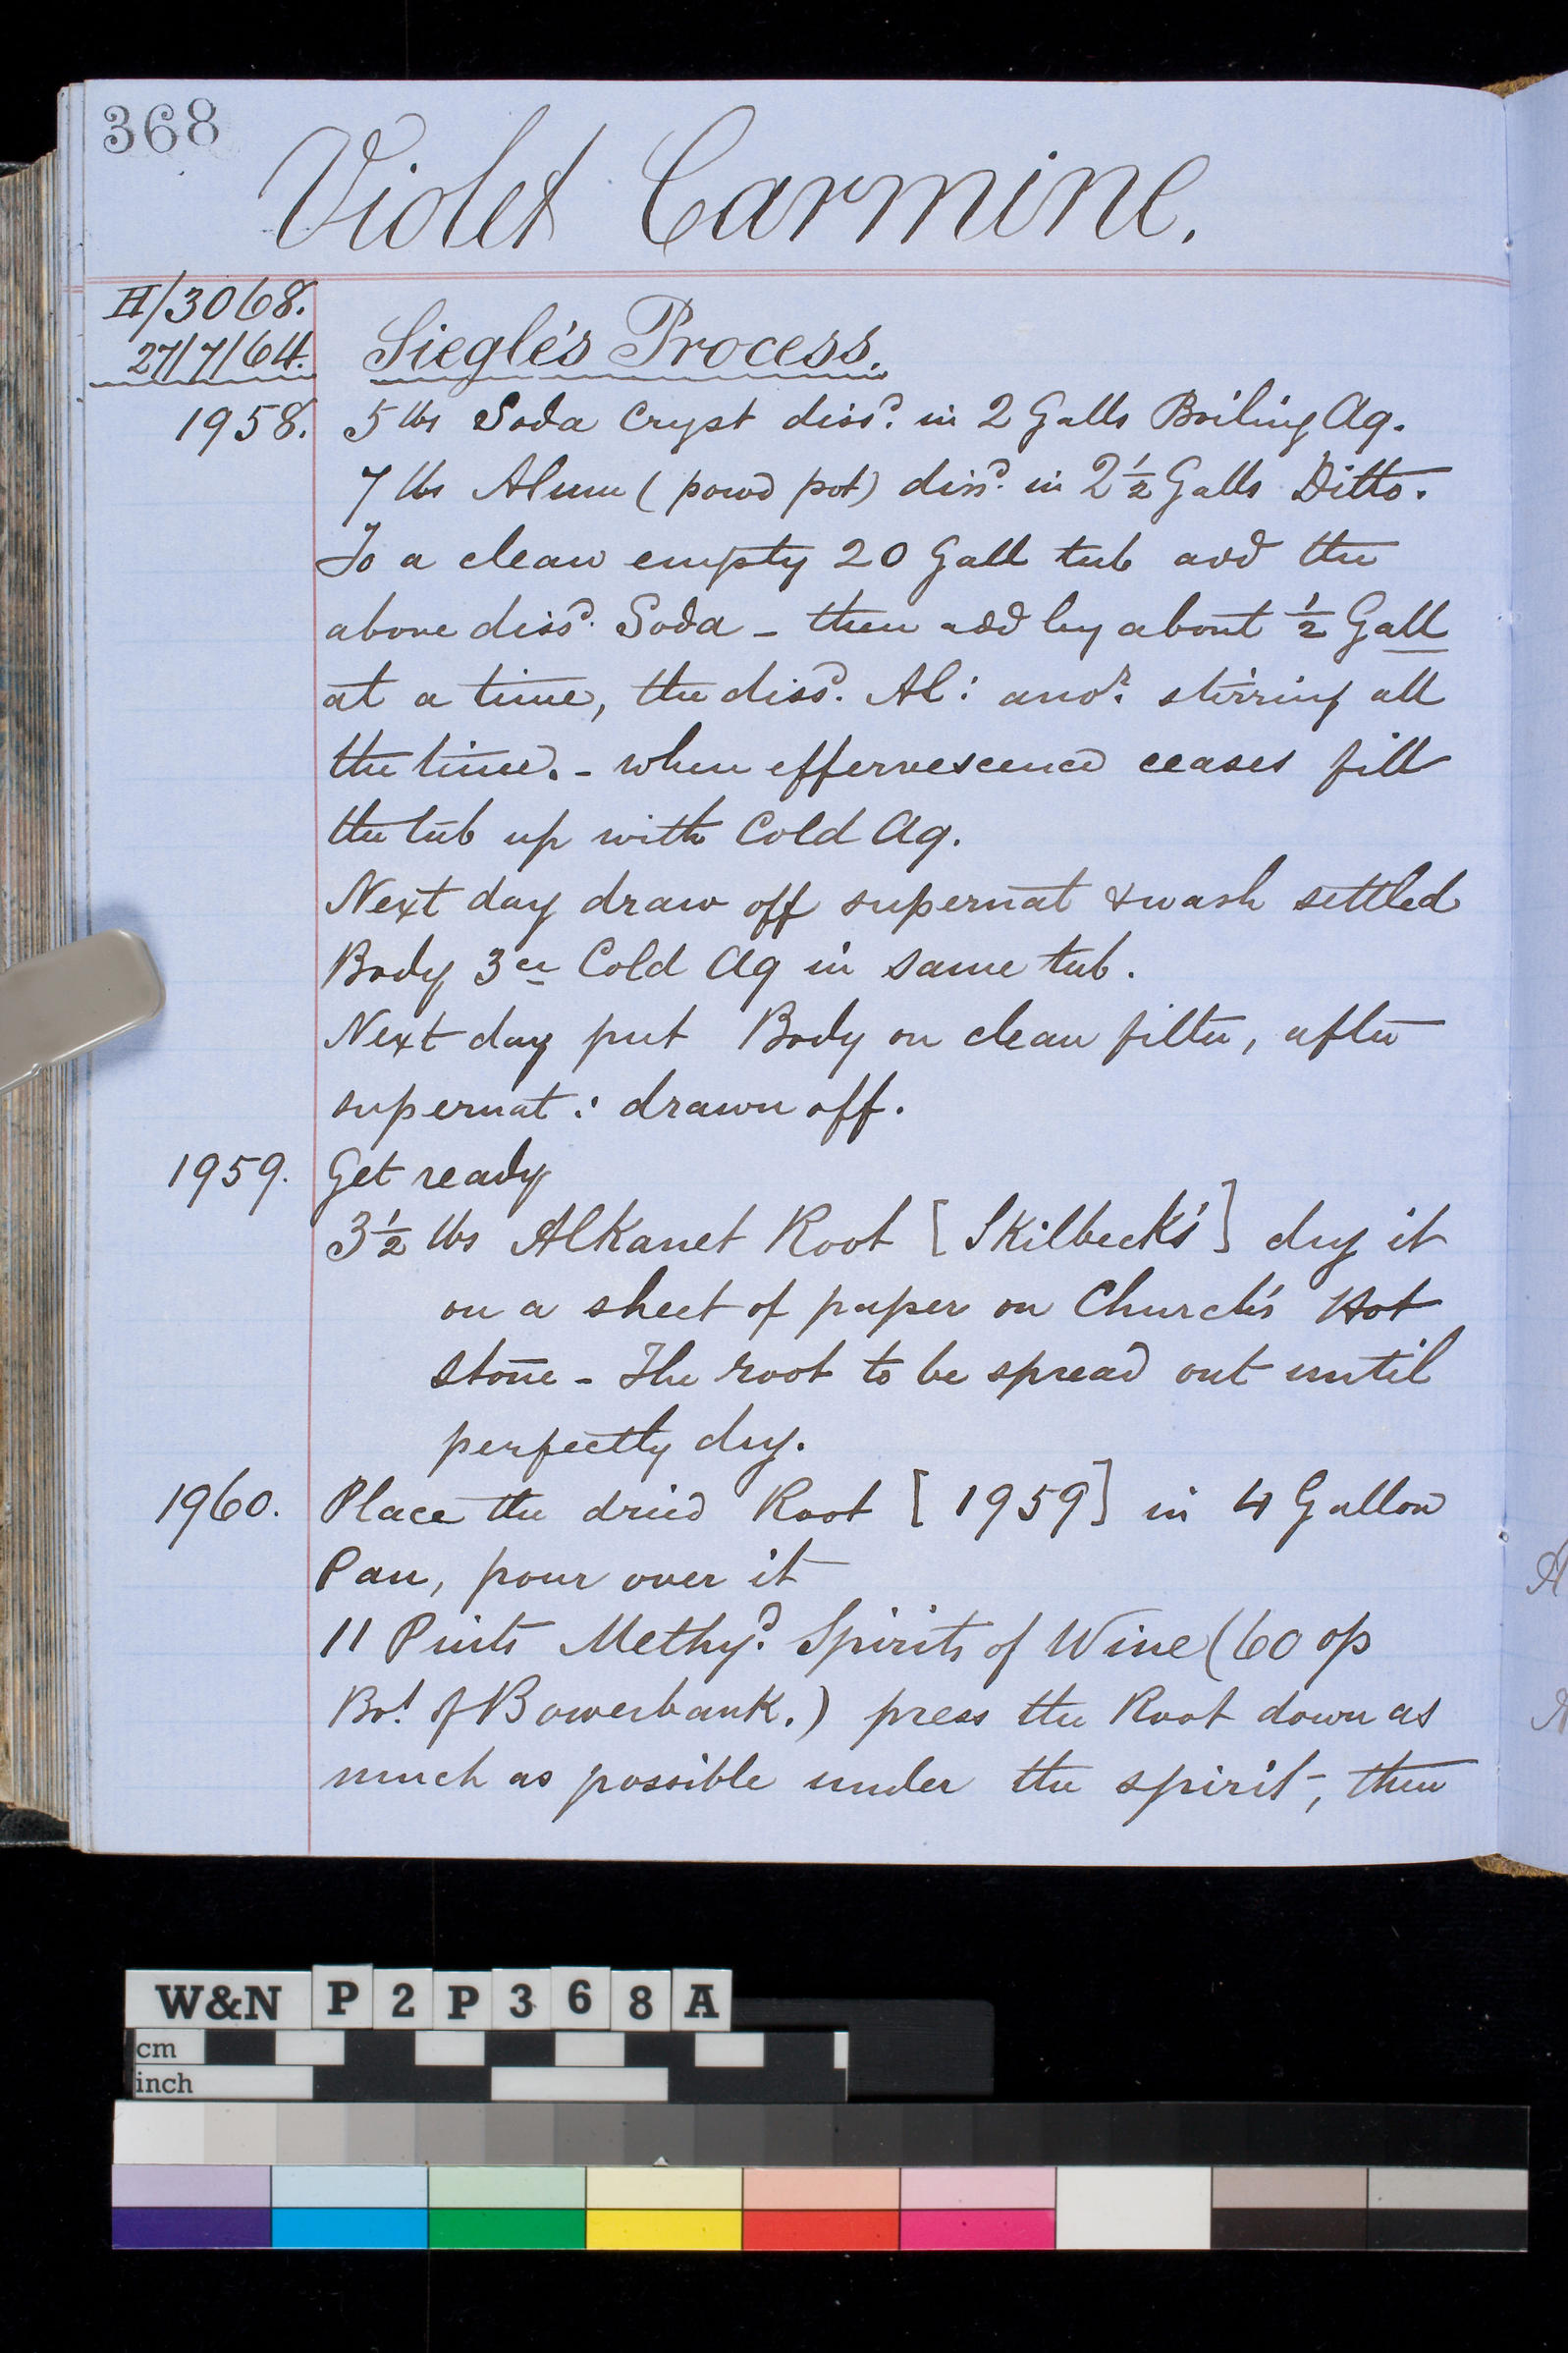 368
Violet Carmine.
H/3068.
27/7/64.
Siegle's Process.
1958. 5 lbs Soda Cryst dissd. in 2 Galls Boiling Aq.
7 lbs Alum (powd pot) dissd. in 2½ Galls Ditto.
To a clean empty 20 Gall tub add the
above dissd. Soda - then add by about ½ Gall
at a time, the dissd. Al: and stirring all
the time. - when effervescence ceases fill
the tub up with Cold Aq.
Next day draw off supernat & wash settled
Body 3ce Cold Aq in same tub.
Next day put Body on clean filter, after
supernat: drawn off.
1959. Get ready
3½ lbs Alkanet Root [Skilbeck's] dry it
on a sheet of paper on Church's Hot
stone - The root to be spread out until
perfectly dry.
1960. Place the dried Root [1959] in 4 Gallon
Pan, pour over it
11 Pints Methyd. Spirits of Wine (60 op
Bot. of Bowerbank.) press the Root down as
much as possible under the spirit, then
W&N P2P368A
cm
inch